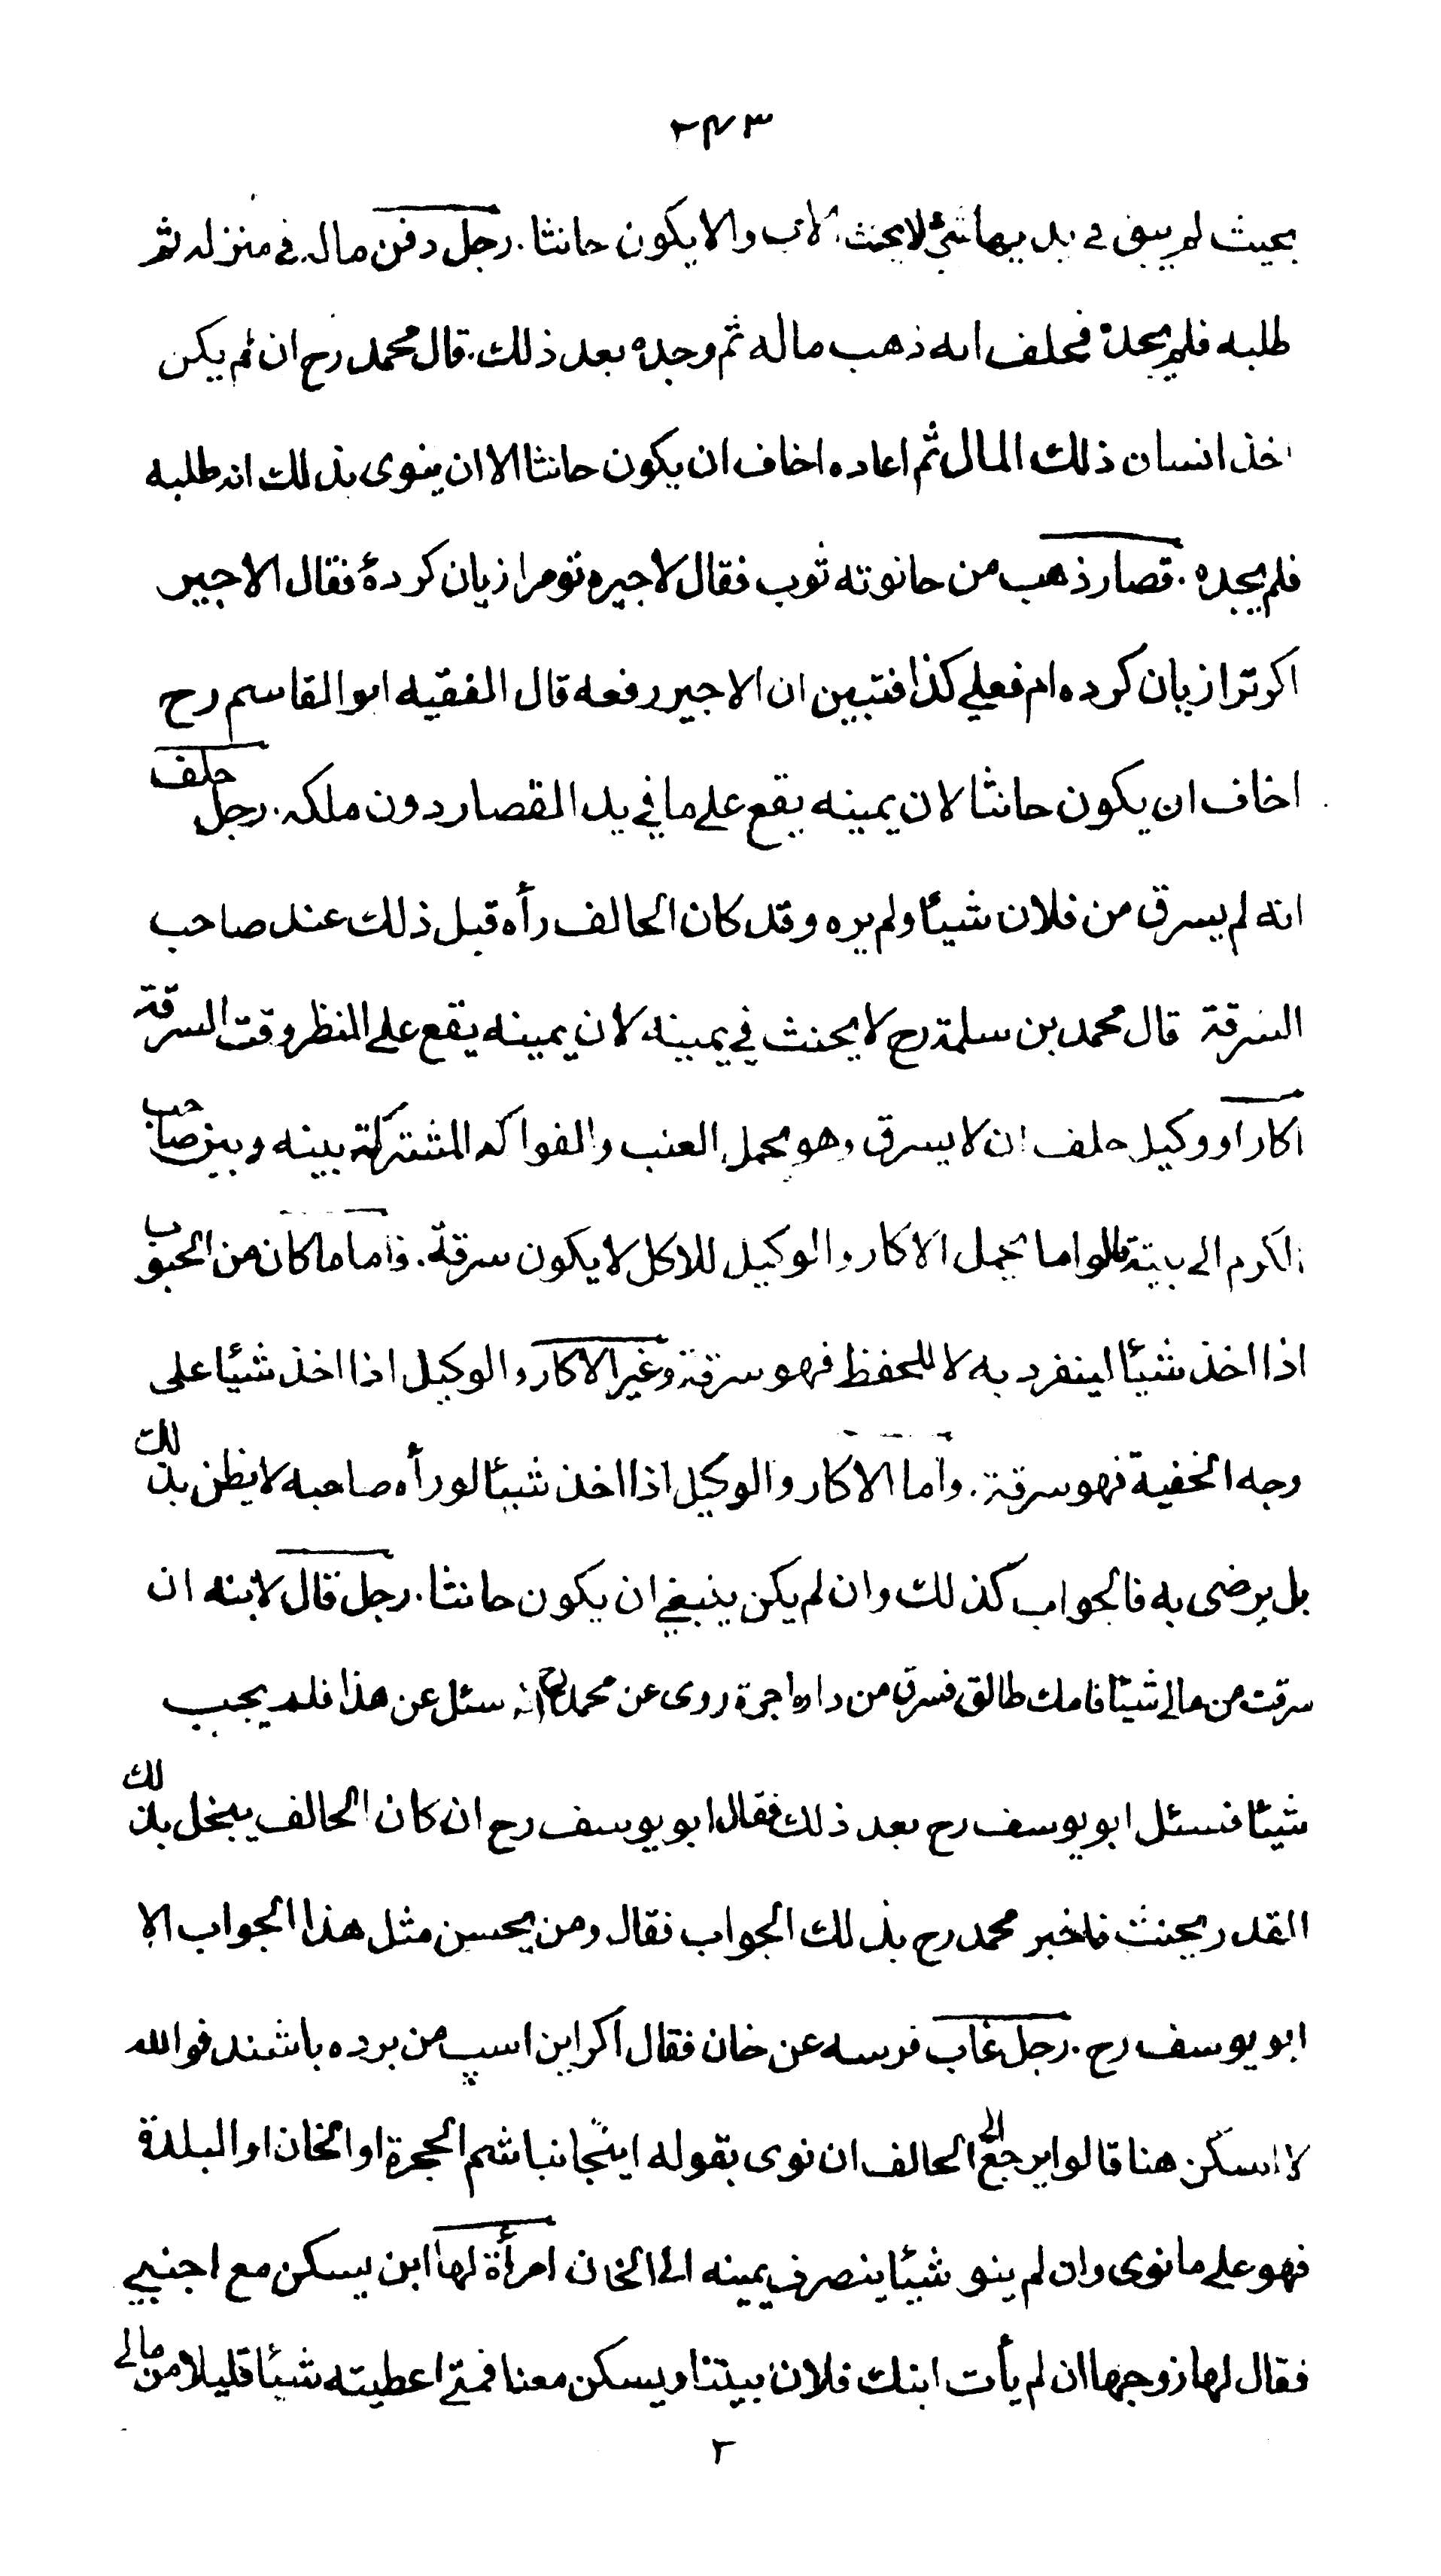 ۲۴۳
بحيث لم يبق في يديها شئ لا يحنث الاب والا يكون حانثا . رجل دفن ماله في منزله ثم
طلبه فلم يجده فحلف انه ذهب ماله ثم وجده بعد ذلك . قال محمد رح ان لم يكن
اخذ انسان ذلك المال ثم اعاده اخاف ان يكون حانثا الا ان ينوى بذلك انه طلبه
فلم يجده . قصار ذهب من حانوته ثوب فقال لاجيره تو مرا زيان كردۀ فقال الاجير
اكر ترا زيان كرده ام فعلي كذا فتبين ان الاجير رفعه قال الفقيه ابو القاسم رح
اخاف ان يكون حانثا لان يمينه يقع على ما في يد القصار دون ملكه . رجل حلف
انه لم يسرق من فلان شيئا ولم يره وقد كان الحالف رأه قبل ذلك عند صاحب
السرقة قال محمد بن سلمة رح لا يحنث في يمينه لان يمينه يقع على النظر وقت السرقة
اكار او وكيل حلف ان لا يسرق وهو يحمل العنب والفواكه المشتركة بينه وبين صاحب
الكرم الى بيته قالوا ما يحمل الاكار والوكيل للاكل لا يكون سرقة . فاما ما كان من الحبوب
اذا اخذ شيئا لينفرد به لا للحفظ فهو سرقة وغير الاكار والوكيل اذا اخذ شيئا على
وجه الخفية فهو سرقة . واما الاكار والوكيل اذا اخذ شيئا لو رأه صاحبه لا يظن بذلك
بل يرضى به فالجواب كذلك وان لم يكن ينبغي ان يكون حانثا . رجل قال لابنه ان
سرقت من مالي شيئا فامك طالق فسرق من داره اجرة روى عن محمد رح انه سئل عن هذا فلم يجب
شيئا فسئل ابو يوسف رح بعد ذلك فقال ابو يوسف رح ان كان الحالف يبخل بذلك
القدر يحنث فاخبر محمد رح بذلك الجواب فقال ومن يحسن مثل هذا الجواب الا
ابو يوسف رح . رجل غاب فرسه عن خان فقال اكر اين اسپ من برده باشند فوالله
لا اسكن هنا قالوا يرجع الى الحالف ان نوى بقوله اينجا نباشم الحجرة او الخان او البلدة
فهو على ما نوى وان لم ينو شيئا ينصرف يمينه الى الخان امرأة لها ابن يسكن مع اجنبي
فقال لها زوجها ان لم يأت ابنك فلان بيتنا ويسكن معنا فمتى اعطيته شيئا قليلا من مالي
۲